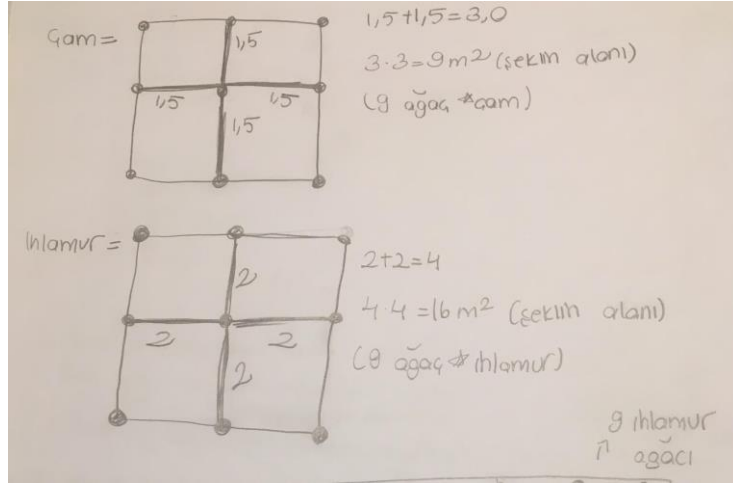 Çam =
1,5
1,5 1,5
1,5
1,5+1,5=3,0
3·3=9m² (şeklin alanı)
(9 ağaç *çam)
Ihlamur =
2
2 2
2
2+2=4
4·4=16m² (şeklin alanı)
(9 ağaç * ıhlamur)
9 ıhlamur
ağacı